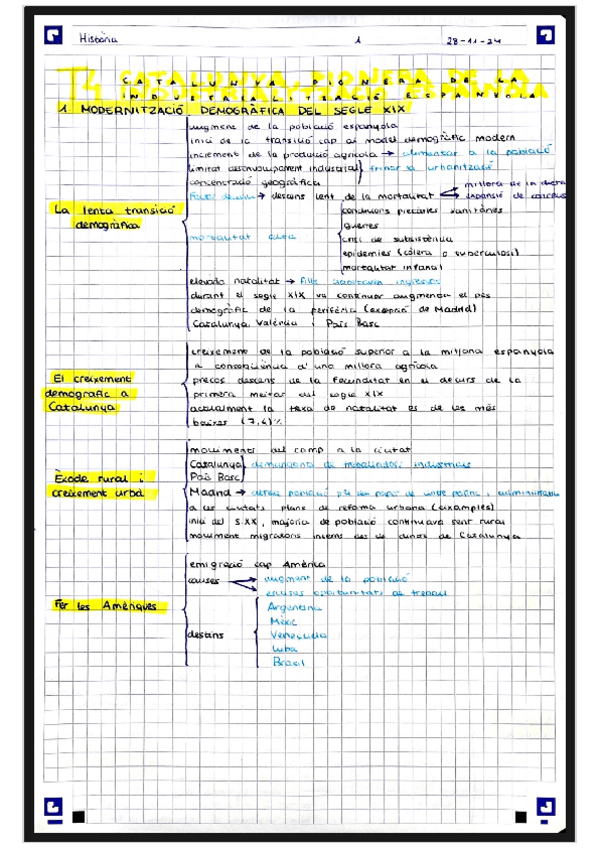 Història 1 28-11-24
T4 CATALUNYA, PIONERA DE LA
INDUSTRIALITZACIÓ ESPANYOLA
1. MODERNITZACIÓ DEMOGRÀFICA DEL SEGLE XIX
La lenta transició
demogràfica
augment de la població espanyola
inici de la transició cap al model demogràfic modern
increment de la producció agrícola → alimentar a la població
limitat desenvolupament industrial
concentració geogràfica
frenar la urbanització
→ descens lent de la mortalitat
millora de la dieta
expansió de
mortalitat
condicions precàries sanitàries
guerres
crisi de subsistència
epidèmies (còlera o tuberculosi)
mortalitat infantil
elevada natalitat → fills
durant el segle XIX va continuar augmentar el pes
demogràfic de la perifèria (excepció de Madrid)
Catalunya, València i País Basc
El creixement
demogràfic a
Catalunya
creixement de la població superior a la mitjana espanyola
a conseqüència d'una millora agrícola
precoç descens de la fecunditat en el decurs de la
primera meitat del segle XIX
actualment la taxa de natalitat és de les més
baixes (7,6)%
Èxode rural i
creixement urbà
moviments del camp a la ciutat
Catalunya
País Basc
demandants de treballadors industrials
Madrid → població pel seu paper de
a les ciutats plans de reforma urbana (eixamples)
inici del S.XX, majoria de població continuava sent rural
moviment migratoris interns des de dins de Catalunya
Fer les Amèriques
emigració cap Amèrica
causes
augment de la població
escasses oportunitats de treball
destins
Argentina
Mèxic
Veneçuela
Cuba
Brasil